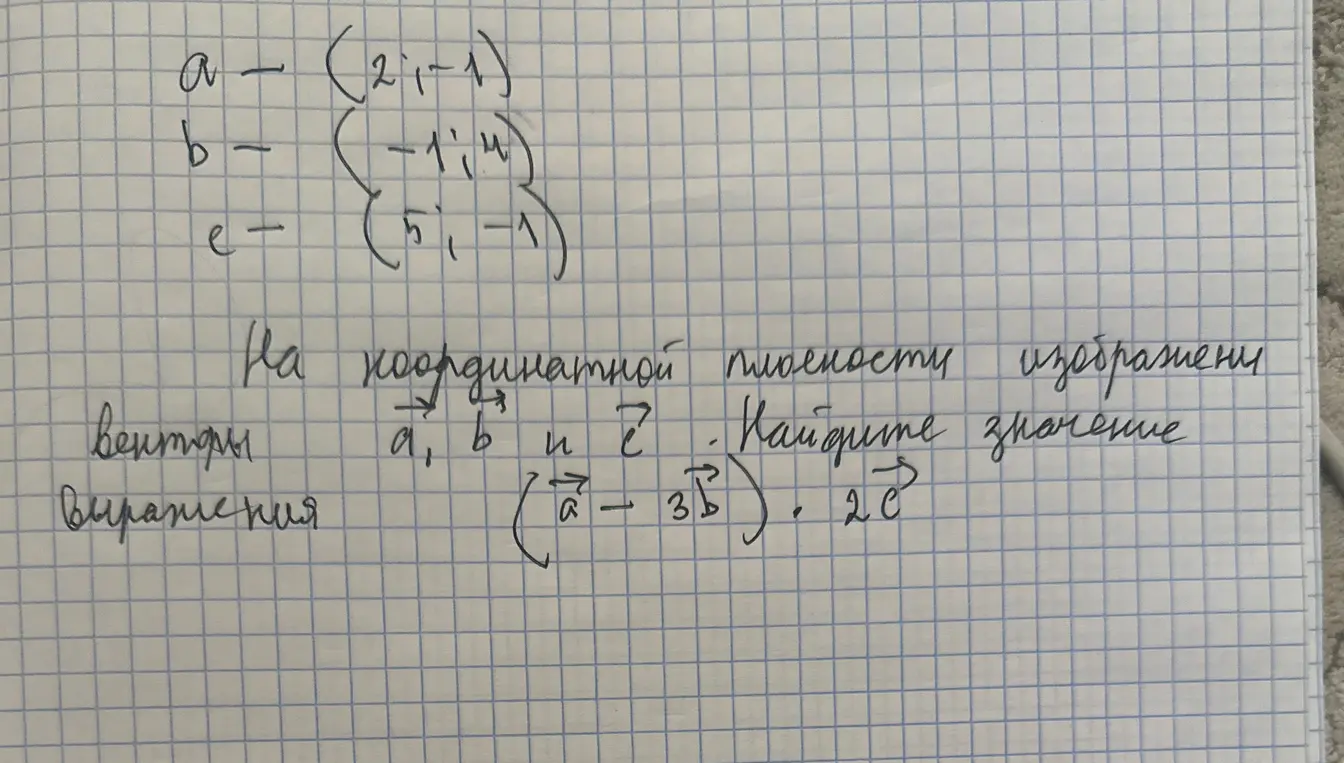 a – (2; -1)
b – (-1; 4)
c – (5; -1)
На координатной плоскости изображени
векторы a⃗, b⃗ и c⃗. Найдите значение
выражения (a⃗ – 3b⃗) · 2c⃗